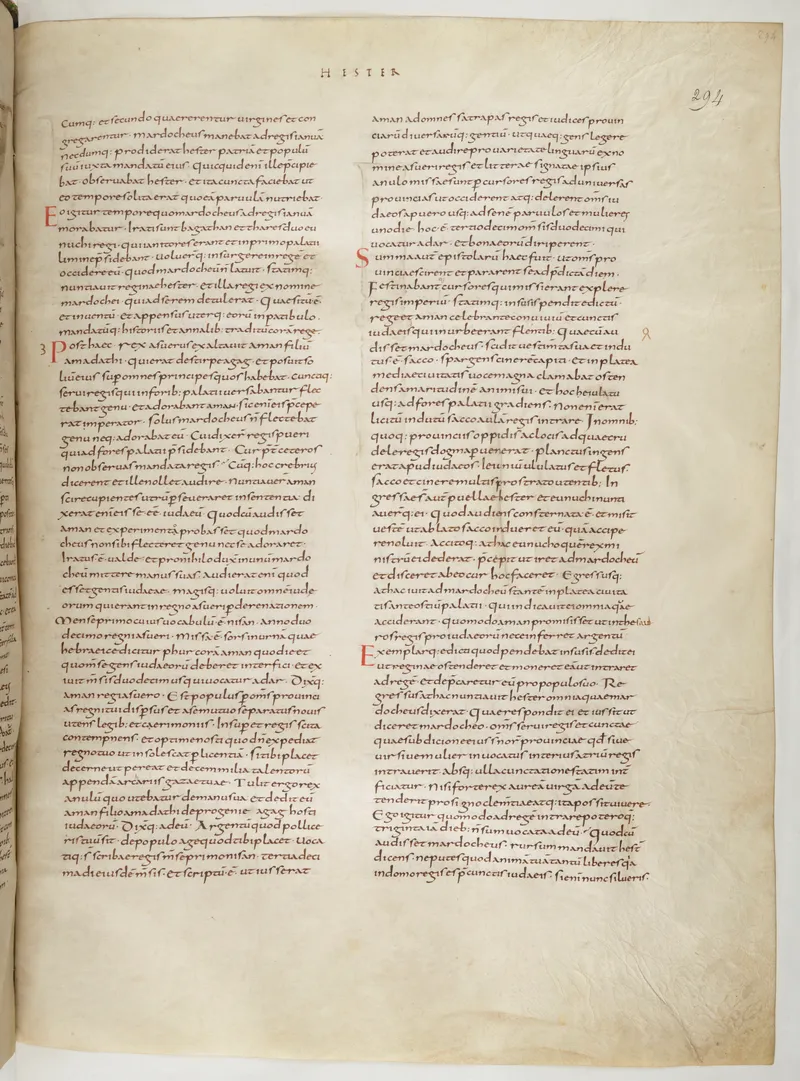 HESTER
294
Cumq: et secundo quaererentur uirgines et con
gregarentur · mardocheus manebat ad regis ianuā
necdumq: prodiderat hester patriā et populū
suū iuxta mandatū eius · Quicquid enī ille p̄cipie
bat · obseruabat hester · et ita cuncta faciebat ut
eo tempore solita erat quo eā paruulā nutriebat
Eo igitur tempore quo mardocheus ad regis ianuā
morabatur · Irati sunt bagathan et thares duo eu
nuchi regis · qui ianitores erant et in primo palatii
limine p̄sidebant · uoluerq: insurgere in regē et
occidere eū · quod mardocheū n̄ latuit · statimq:
nuntiauit reginae hester · et illa regi ex nomine
mardochei · qui ad se rem detulerat · Quaesitū ē
et inuentū · et appensus uterq: eorū in patibulo ·
mandatūq: historiis et annalib: traditū corā rege ·
3 Post haec · rex asuerus exaltauit aman filiū
amadathi · qui erat de stirpe agag · et posuit so
liū eius sup omnes principes quos habebat · cunctiq:
serui regis qui in forib: palatii uersabantur flec
tebant genu · et adorabant aman · sic enī eis p̄cepe
rat imperator · solus mardocheus n̄ flectebat
genu neq: adorabat eū · Cui dixer̄ regis pueri
qui ad fores palatii p̄sidebant · Cur pt̄ ceteros
non obseruas mandata regis · Cūq: hoc crebrius
dicerent et ille nollet audire · nuntiauer̄ aman
scire cupientes utrū p̄seueraret in sententia · di
xerat enī eis se ēē iudaeū · Quod cū audisset
aman et experimento probasset quod mardo
cheus non sibi flecteret genu nec se adoraret ·
Iratus ē ualde · et pro nihilo duxit in unū mardo
cheū mittere manus suas · Audierat enī quod
esset gentis iudaeae · magisq: uoluit omnē iude
orum qui erant in regno asueri pdere nationem ·
Mense primo cuius uocabulū ē nisan · Anno duo
decimo regni asueri · missa ē sors in urnā quae
hebraeice dicitur phur corā aman quo die et
quo m̄se gens iudaeorū deberet interfici · et ex
iuit m̄sis duodecimus qui uocatur adar · Dixq:
aman regi asuero · Est populus p om̄s prouincias
regni tui dispersus et a se mutuo separatus nouis
utens legib: et caerimoniis · Insup et regis scita
contempnens · et optime nosti quod n̄ expediat
regno tuo ut insolescat p licentiā · si tibi placet
decerne ut pereat et decem milia talentorū
appendā arcariis gazae tuae · Tulit ergo rex
anulū quo utebatur de manu sua et dedit eū
aman filio amadathi de progenie agag hosti
iudaeorū · Dixq: ad eū · Argentū quod pollice
ris tuū sit · de populo age quod tibi placet · Uoca
tiq: s̄ scribae regis m̄se primo nisan · tertia deci
ma die iusdē m̄sis · et scriptū ē · ut iusserat
aman ad omnes satrapas regis et iudices prouin
ciarū diuersarūq: gentiū · ut quaeq: gens legere
poterat et audire pro uarietate linguarū ex no
mine asueri regis et litterae signatae ipsius
anulo missae sunt p cursores regis ad uniuersas
prouincias ut occiderent atq: delerent om̄s iu
daeos a puero usq: ad senē paruulos et mulieres
uno die · hoc ē · tertio decimo m̄sis duodecimi qui
uocatur adar · et bona eorū diriperent ·
Summa aut̄ epistolarū haec fuit · ut om̄s pro
uinciae scirent et pararent se ad p̄dictā diem ·
Festinabant cursores qui missi erant explere
regis imperiū · statimq: in susis pendit edictū ·
rege et aman celebrante conuiuiū et cunctis
iudaeis qui in urbe erant flentib: Quae cū au
disset mardocheus · scidit uestim̄ta sua et indu
tus ē sacco · spargens cinerē capiti · et in platea
mediae ciuitatis uoce magna clamabat osten
dens amaritudinē animi sui · et hoc heiulatu
usq: ad fores palatii gradiens · non enī erat
licitū indutū sacco aulā regis intrare · In omnib:
quoq: prouinciis oppidis ac locis ad quae cru
dele regis dogma puenerat · planctus ingens
erat apud iudaeos · ieiuniū ululatus et fletus ·
sacco et cinere multis pro strato utentib: In
gressae s̄ aut̄ puellae hester et eunuchi nuntia
uerq: ei · Quod audiens consternata ē · et misit
uestē ut ablato sacco indueret eū · quā accipe
re noluit · Accitoq: athac eunucho quē rex mi
nistrū ei dederat · p̄cepit ut iret ad mardocheū
et disceret ab eo cur hoc faceret · Egressusq:
athac iuit ad mardocheū stantē in platea ciuita
tis ante ostiū palatii · Qui indicauit ei omnia quae
acciderant · quomodo aman promisisset ut in thesau
ros regis pro iudaeorū nece inferret argentū
Exemplarq: edicti quod pendebat in susis dedit ei
ut reginae ostenderet et moneret eā ut intraret
ad regē · et dep̄caretur eū pro populo suo · Re
gressus athac nuntiauit hester omnia quae mar
docheus dixerat · Quae respondit ei et iussit ut
diceret mardocheo · om̄s serui regis et cunctae
quae sub dicione eius s̄ norunt prouinciae qd̄ siue
uir siue mulier inuocatus interius atriū regis
intrauerit · absq: ulla cunctatione statim int̄
ficiatur · nisi forte rex aureā uirgā ad eū te
tenderit pro signo clem̄tiae atq: ita possit uiuere ·
Ego igitur quomodo ad regē intrare potero q:
triginta iā dieb: n̄ sum uocata ad eū · Quod cū
audisset mardocheus · rursum mandauit hest̄
dicens · ne putes quod animā tuā tantū liberes quia
in domo regis es p̄ cunctis iudaeis · si enī nunc silueris ·